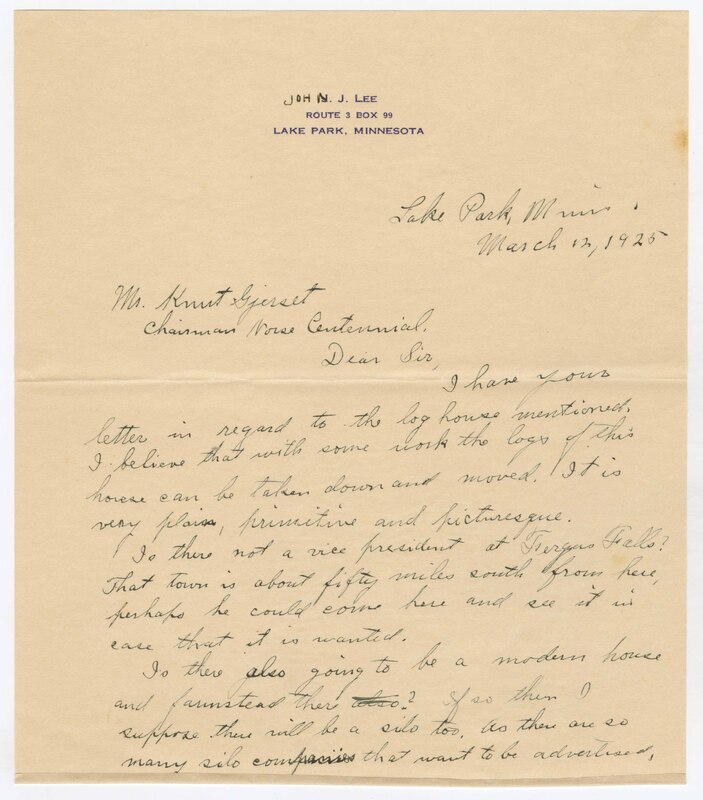 JOHN. J. LEE
ROUTE 3 BOX 99
LAKE PARK, MINNESOTA
Lake Park, Minn.
March 12, 1925
Mr. Knut Gjerset
Chairman Norse Centennial.
Dear Sir,
I have your
letter in regard to the log house mentioned.
I believe that with some work the logs of this
house can be taken down and moved. It is
very plain, primitive and picturesque.
Is there not a vice president at Fergus Falls?
That town is about fifty miles south from here,
perhaps he could come here and see it in
case that it is wanted.
Is there also going to be a modern house
and farmstead ther also? If so then I
suppose there will be a silo too. As ther are so
many silo companies that want to be advertised,